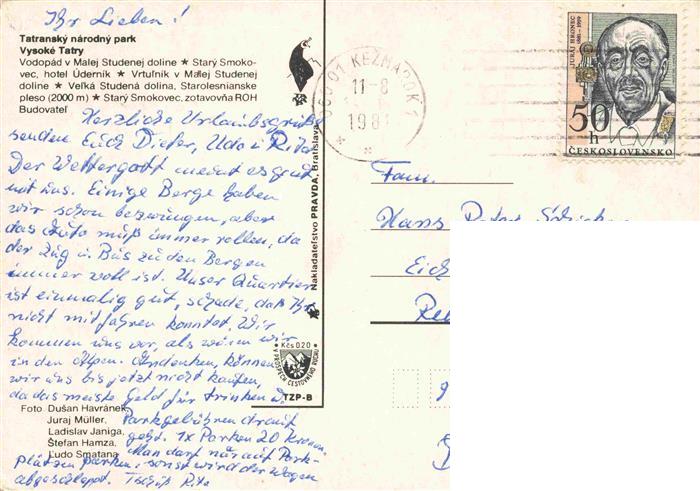 Ihr Lieben!
Tatranský národný park
Vysoké Tatry
Vodopád v Malej Studenej doline ★ Starý Smoko-
vec, hotel Úderník ★ Vrtuľník v Malej Studenej
doline ★ Veľká Studená dolina, Starolesnianske
pleso (2000 m) ★ Starý Smokovec, zotavovňa ROH
Budovateľ
Herzliche Urlaubsgrüße
senden Euch Dieter, Udo u. Rita
Der Wettergott meint es gut
mit uns. Einige Berge haben
wir schon bezwungen, aber
das Auto muß immer rollen, da
der Zug u. Bus zu den Bergen
immer voll ist. Unser Quartier
ist einmalig gut, schade, daß Ihr
nicht mitfahren konntet. Wir
kommen uns vor, als wären wir
in den Alpen. Andenken, können
wir uns bis jetzt nicht kaufen,
da das meiste Geld für trinken u.
Parkgebühren drauf
geht. 1x Parken 20 Kronen.
Man darf nur auf Park-
plätzen parken, sonst wird der Wagen
abgeschleppt. Tschüß Rita
Foto Dušan Havránek,
Juraj Müller,
Ladislav Janiga,
Štefan Hamza,
Ľudo Smatana
Nakladateľstvo PRAVDA, Bratislava
Kčs 0,20
V PROSPECH CESTOVNÉHO RUCHU
TZP-B
060 01 KEŽMAROK 1
11-8
JURAJ HRONEC
1881-1959
50 h
ČESKOSLOVENSKO
Fam.
Hans Peter